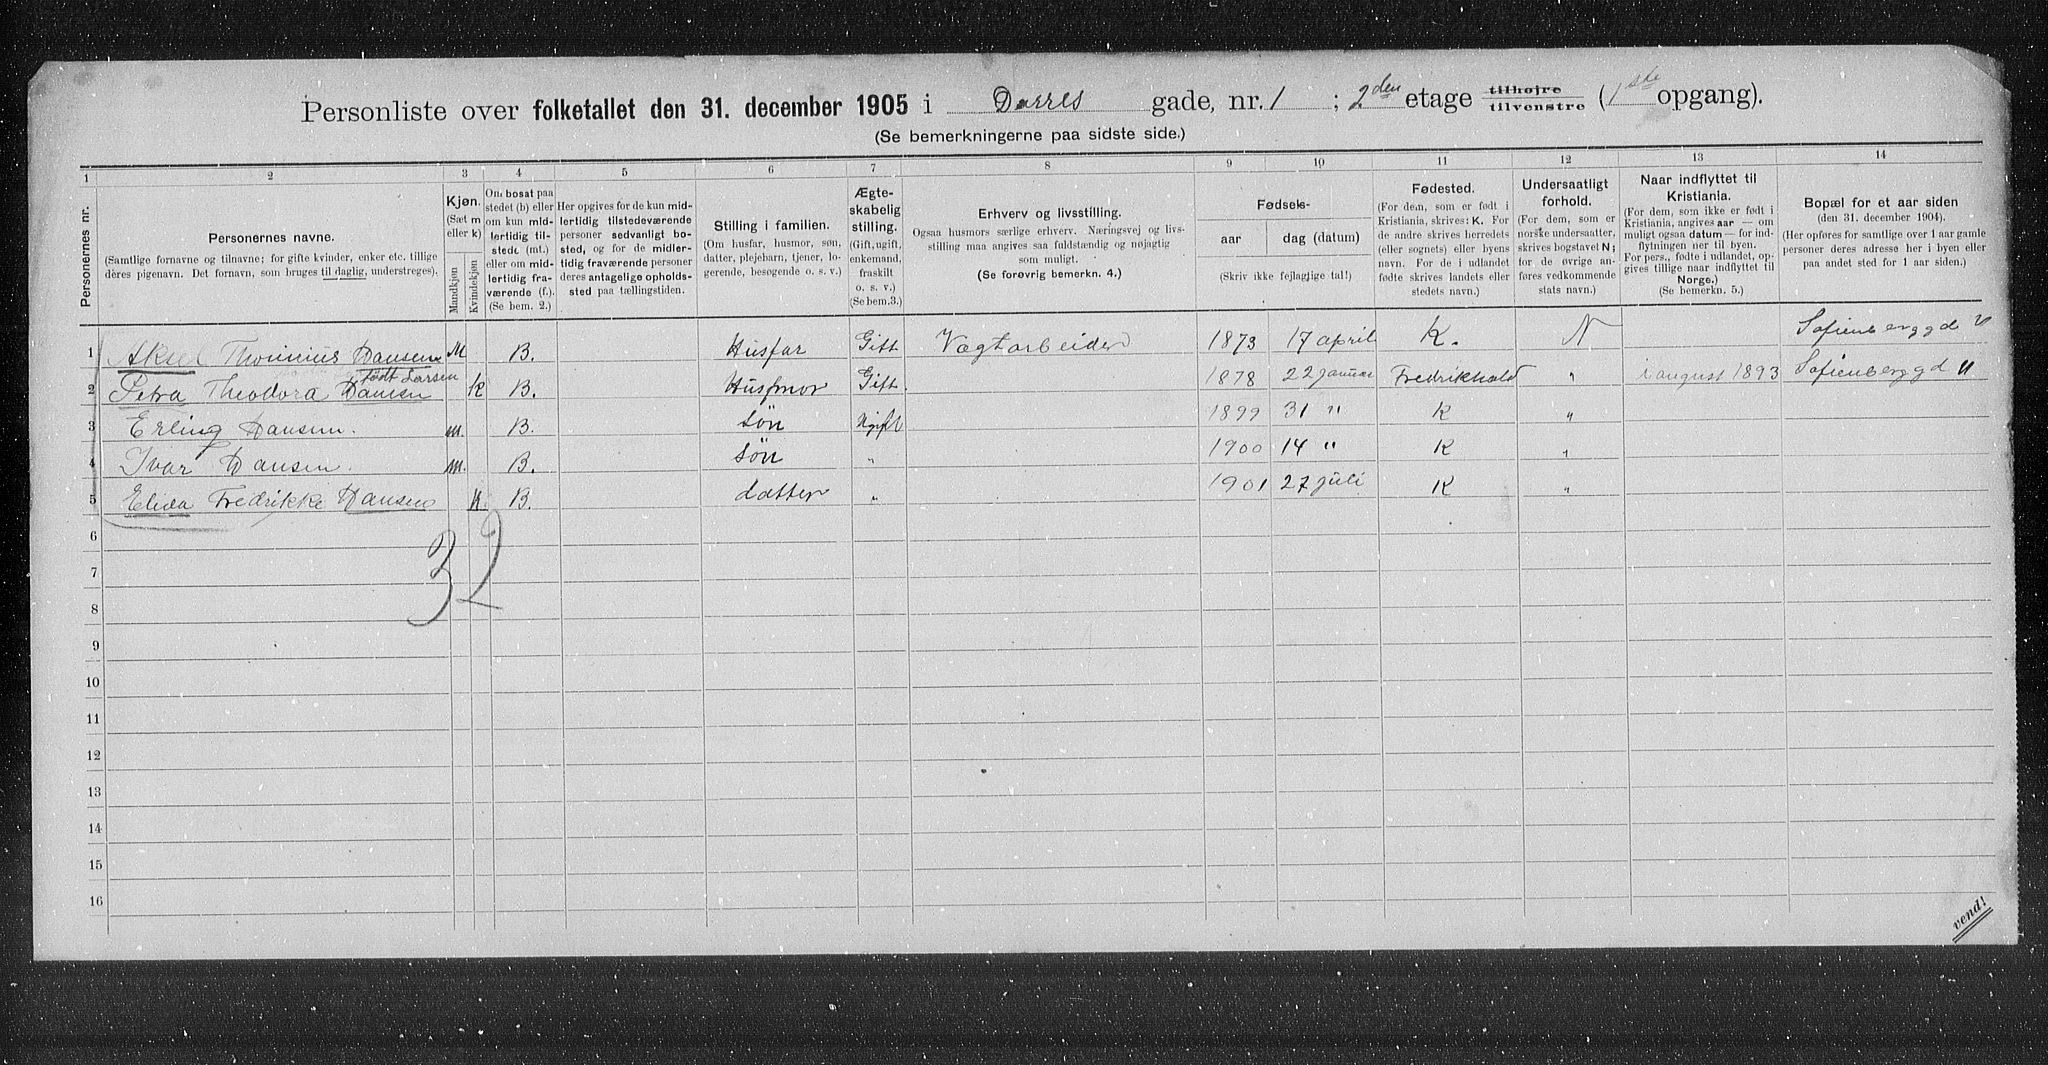 Personliste over folketallet den 31. december 1905 i Darres gade, nr. 1 ; 2den etage tilhøjre tilvenstre (1ste opgang).
(Se bemerkningerne paa sidste side.)
1 2 3 4 5 6 7 8 9 10 11 12 13 14
Personernes nr.
Personernes navne.
(Samtlige fornavne og tilnavne; for gifte kvinder, enker etc. tillige
deres pigenavn. Det fornavn, som bruges til daglig, understreges).
Kjøn.
(Sæt m
eller k)
Mandkjøn
Kvindekjøn
Om bosat paa
stedet (b) eller
om kun mid-
lertidig til-
stede (mt.)
eller om mid-
lertidig fra-
værende (f.).
(Se bem. 2.)
Her opgives for de kun mid-
lertidig tilstedeværende
personer sedvanligt bo-
sted, og for de midler-
tidig fraværende personer
deres antagelige opholds-
sted paa tællingstiden.
Stilling i familien.
(Om husfar, husmor, søn,
datter, plejebarn, tjener, lo-
gerende, besøgende o. s. v.)
Ægte-
skabelig
stilling.
(Gift, ugift,
enkemand,
fraskilt
o. s. v.)
(Se bem.3.)
Erhverv og livsstilling.
Ogsaa husmors særlige erhverv. Næringsvej og livs-
stilling maa angives saa fuldstændig og nøjagtig
som muligt.
(Se forøvrig bemerkn. 4.)
Fødsels-
aar
dag (datum)
(Skriv ikke fejlagtige tal!)
Fødested.
(For dem, som er født i
Kristiania, skrives: K. For
de andre skrives herredets
(eller sognets) eller byens
navn. For de i udlandet
fødte skrives landets eller
stedets navn.)
Undersaatligt
forhold.
(For dem, som er
norske undersaatter,
skrives bogstavet N;
for de øvrige an-
føres vedkommende
stats navn.)
Naar indflyttet til
Kristiania.
(For dem, som ikke er født i
Kristiania, angives aar — om
muligt ogsaa datum — for ind-
flytningen ner til byen.
For pers., fødte i udlandet, op-
gives tillige naar indflyttet til
Norge.)
(Se bemerkn. 5.)
Bopæl for et aar siden
(den 31. december 1904).
(Her opføres for samtlige over 1 aar gamle
personer deres adresse her i byen eller
paa andet sted for 1 aar siden.)
1 Aksel Thorinius Hansen M B. Husfar Gift Vægtarbeider 1873 17 april K. N Sofienberggd
født Larsen
2 Petra Theodora Hansen k B. Husmor Gift 1878 22 januar Fredrikhald " i august 1893 Sofienberggd
3 Erling Hansen. m. B. søn Ugift 1899 31 " K "
4 Ivar Hansen. m. B. søn " 1900 14 " K "
5 Elida Fredrikke Hansen K. B. datter " 1901 27 juli K "
6
32
7
8
9
10
11
12
13
14
15
16
vend!